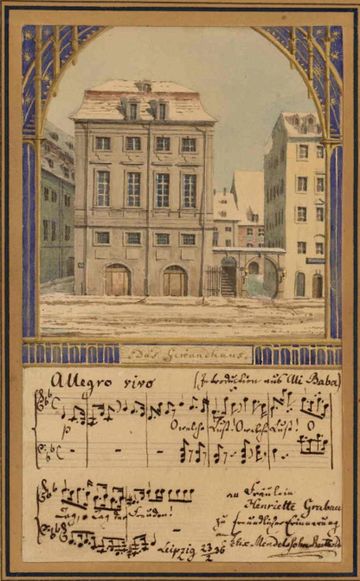 Das Gewandhaus.
Allegro vivo (Introduction aus Ali Baba)
p O welche Lust! O welche Lust! O
Tag, o Tag der Freuden!
an Fräulein
Henriette Grabau
zu freundlicher Erinnerung
Leipzig 23/2 36 Felix Mendelssohn Bartholdy